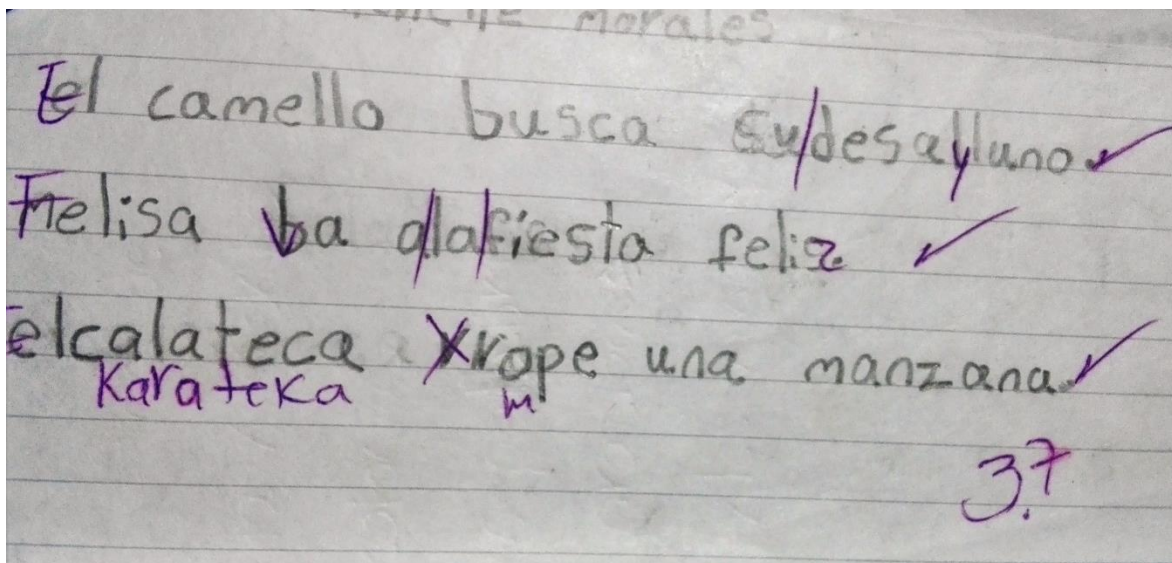 Morales
El camello busca su/desaylluno
Felisa ba a/la/fiesta feliz
elcalateca rope una manzana
Karateka m
3.7